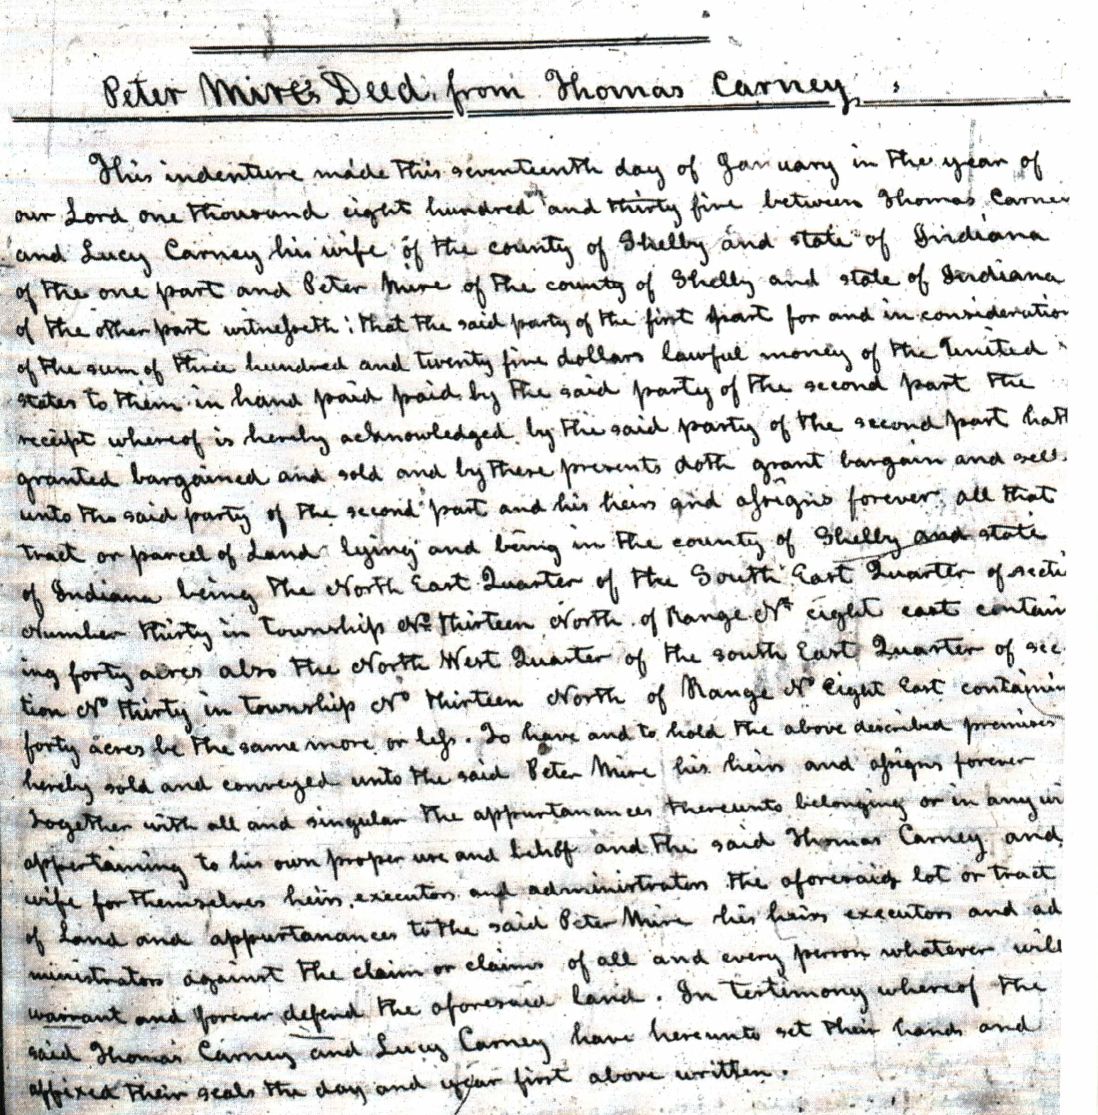 Peter Mire's Deed from Thomas Carney
This indenture made this seventeenth day of January in the year of
our Lord one thousand eight hundred and thirty five between Thomas Carney
and Lucy Carney his wife of the county of Shelby and state of Indiana
of the one part and Peter Mire of the county of Shelby and state of Indiana
of the other part witnesseth: that the said party of the first part for and in consideration
of the sum of three hundred and twenty five dollars lawful money of the United
states to them in hand paid paid by the said party of the second part the
receipt whereof is hereby acknowledged by the said party of the second part hath
granted bargained and sold and by these presents doth grant bargain and sell
unto the said party of the second part and his heirs and assigns forever all that
tract or parcel of Land lying and being in the county of Shelby and state
of Indiana being the North East Quarter of the South East Quarter of secti
Number thirty in township No thirteen North of Range No eight east contain
ing forty acres also the North West Quarter of the south East Quarter of sec
tion No thirty in township No thirteen North of Range No Eight East containin
forty acres be the same more or less. To have and to hold the above described premises
hereby sold and conveyed unto the said Peter Mire his heirs and assigns forever
Together with all and singular the appurtanances thereunto belonging or in any wi
appertaining to his own proper use and behoff and the said Thomas Carney and
wife for themselves heirs executors and administrators the aforesaid lot or tract
of Land and appurtanances to the said Peter Mire his heirs executors and ad
ministrators against the claim or claims of all and every person whatever will
warrant and forever defend the aforesaid land. In testimony whereof the
said Thomas Carney and Lucy Carney have hereunto set their hands and
affixed their seals the day and year first above written.